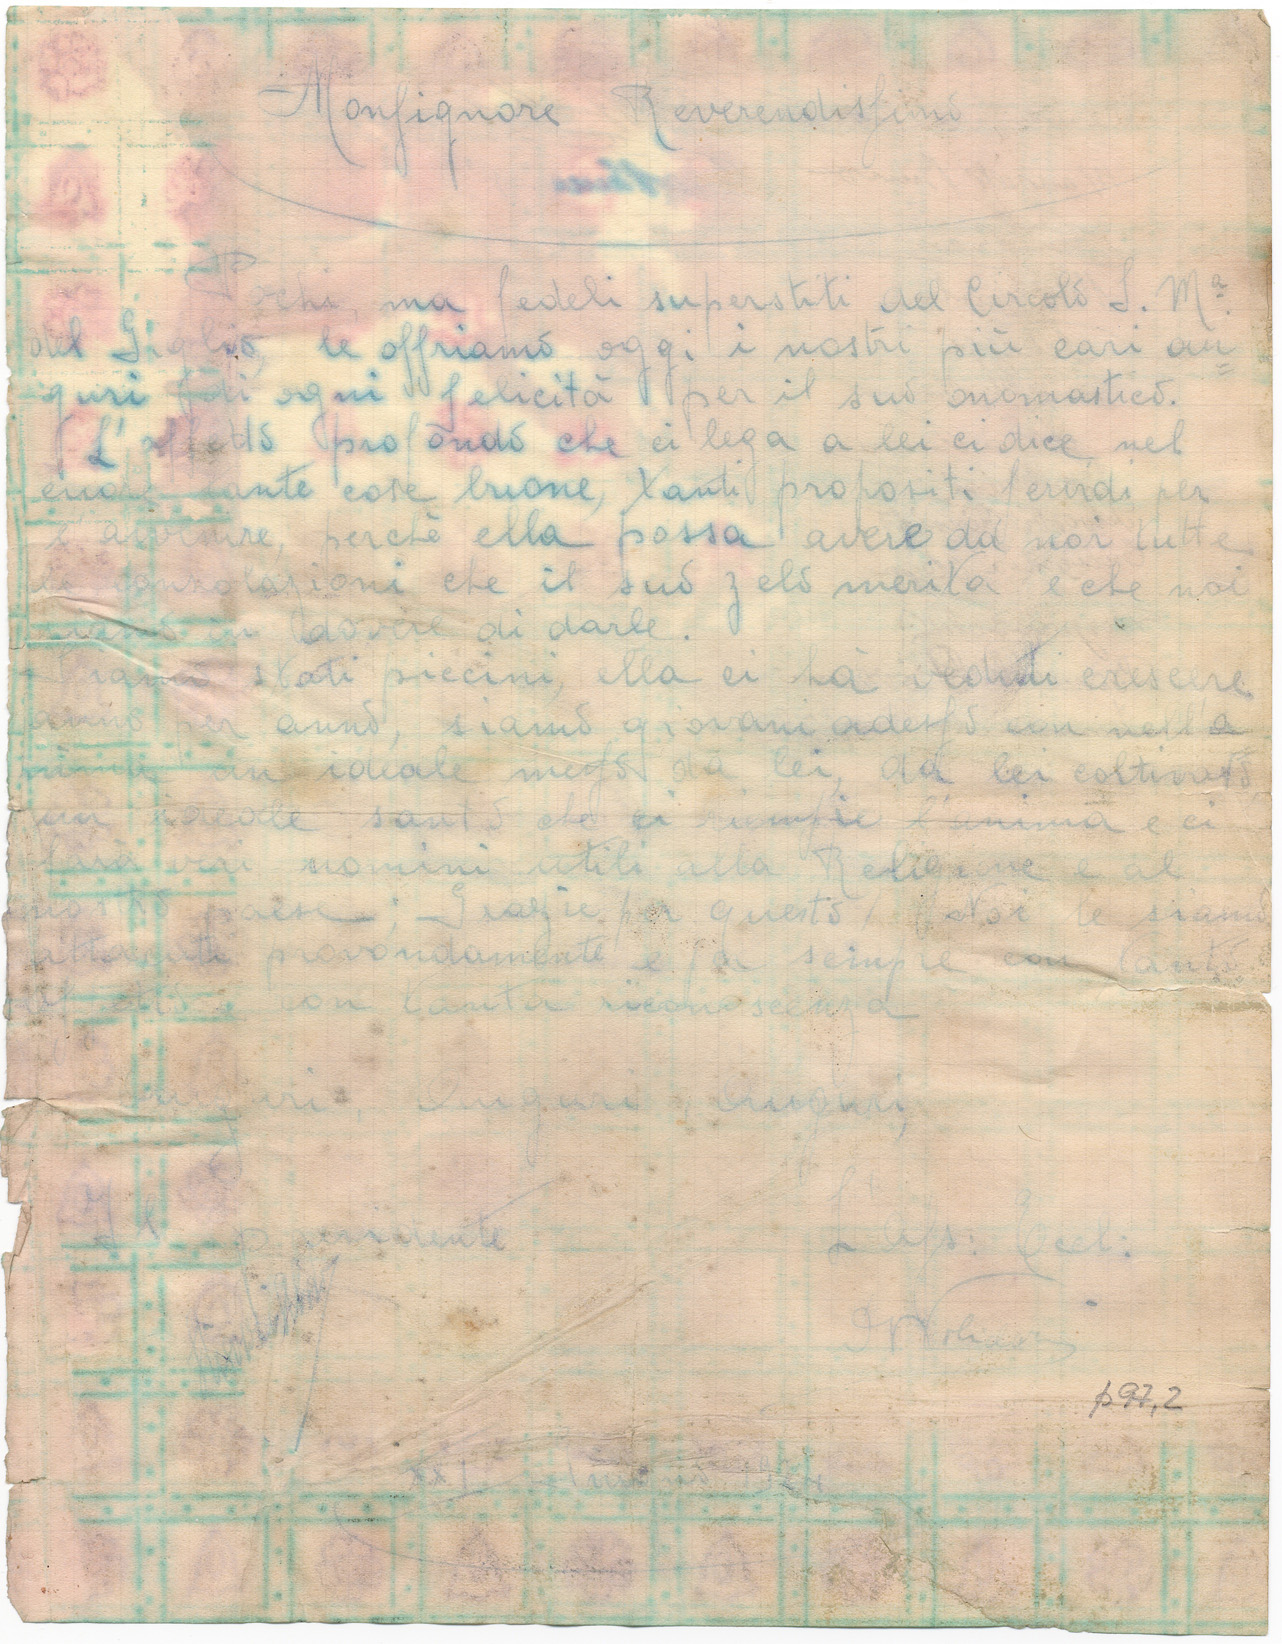 Monsignore Reverendissimo
Pochi, ma fedeli superstiti del Circolo S. Mª
del Giglio, le offriamo oggi i nostri più cari au=
guri di ogni felicità per il suo onomastico.
L'affetto profondo che ci lega a lei ci dice nel
cuore tante cose buone, tanti propositi per
l'avvenire, perchè ella possa avere da noi tutte
le consolazioni che il suo zelo merita e che noi
in dovere di darle.
stati piccini, ella ci ha veduti crescere
anno per anno, siamo giovani adesso con nell'a
nima un ideale messo da lei, da lei coltivato
un ideale santo che ci riempie l'anima e ci
farà veri uomini utili alla Religione e al
nostro paese; Grazie per questo! Noi le siamo
provondamente e per sempre con tanto
affetto e con tanta riconoscenza
auguri, auguri, auguri,
Il presidente L'Ass: Eccl:
p 97,2